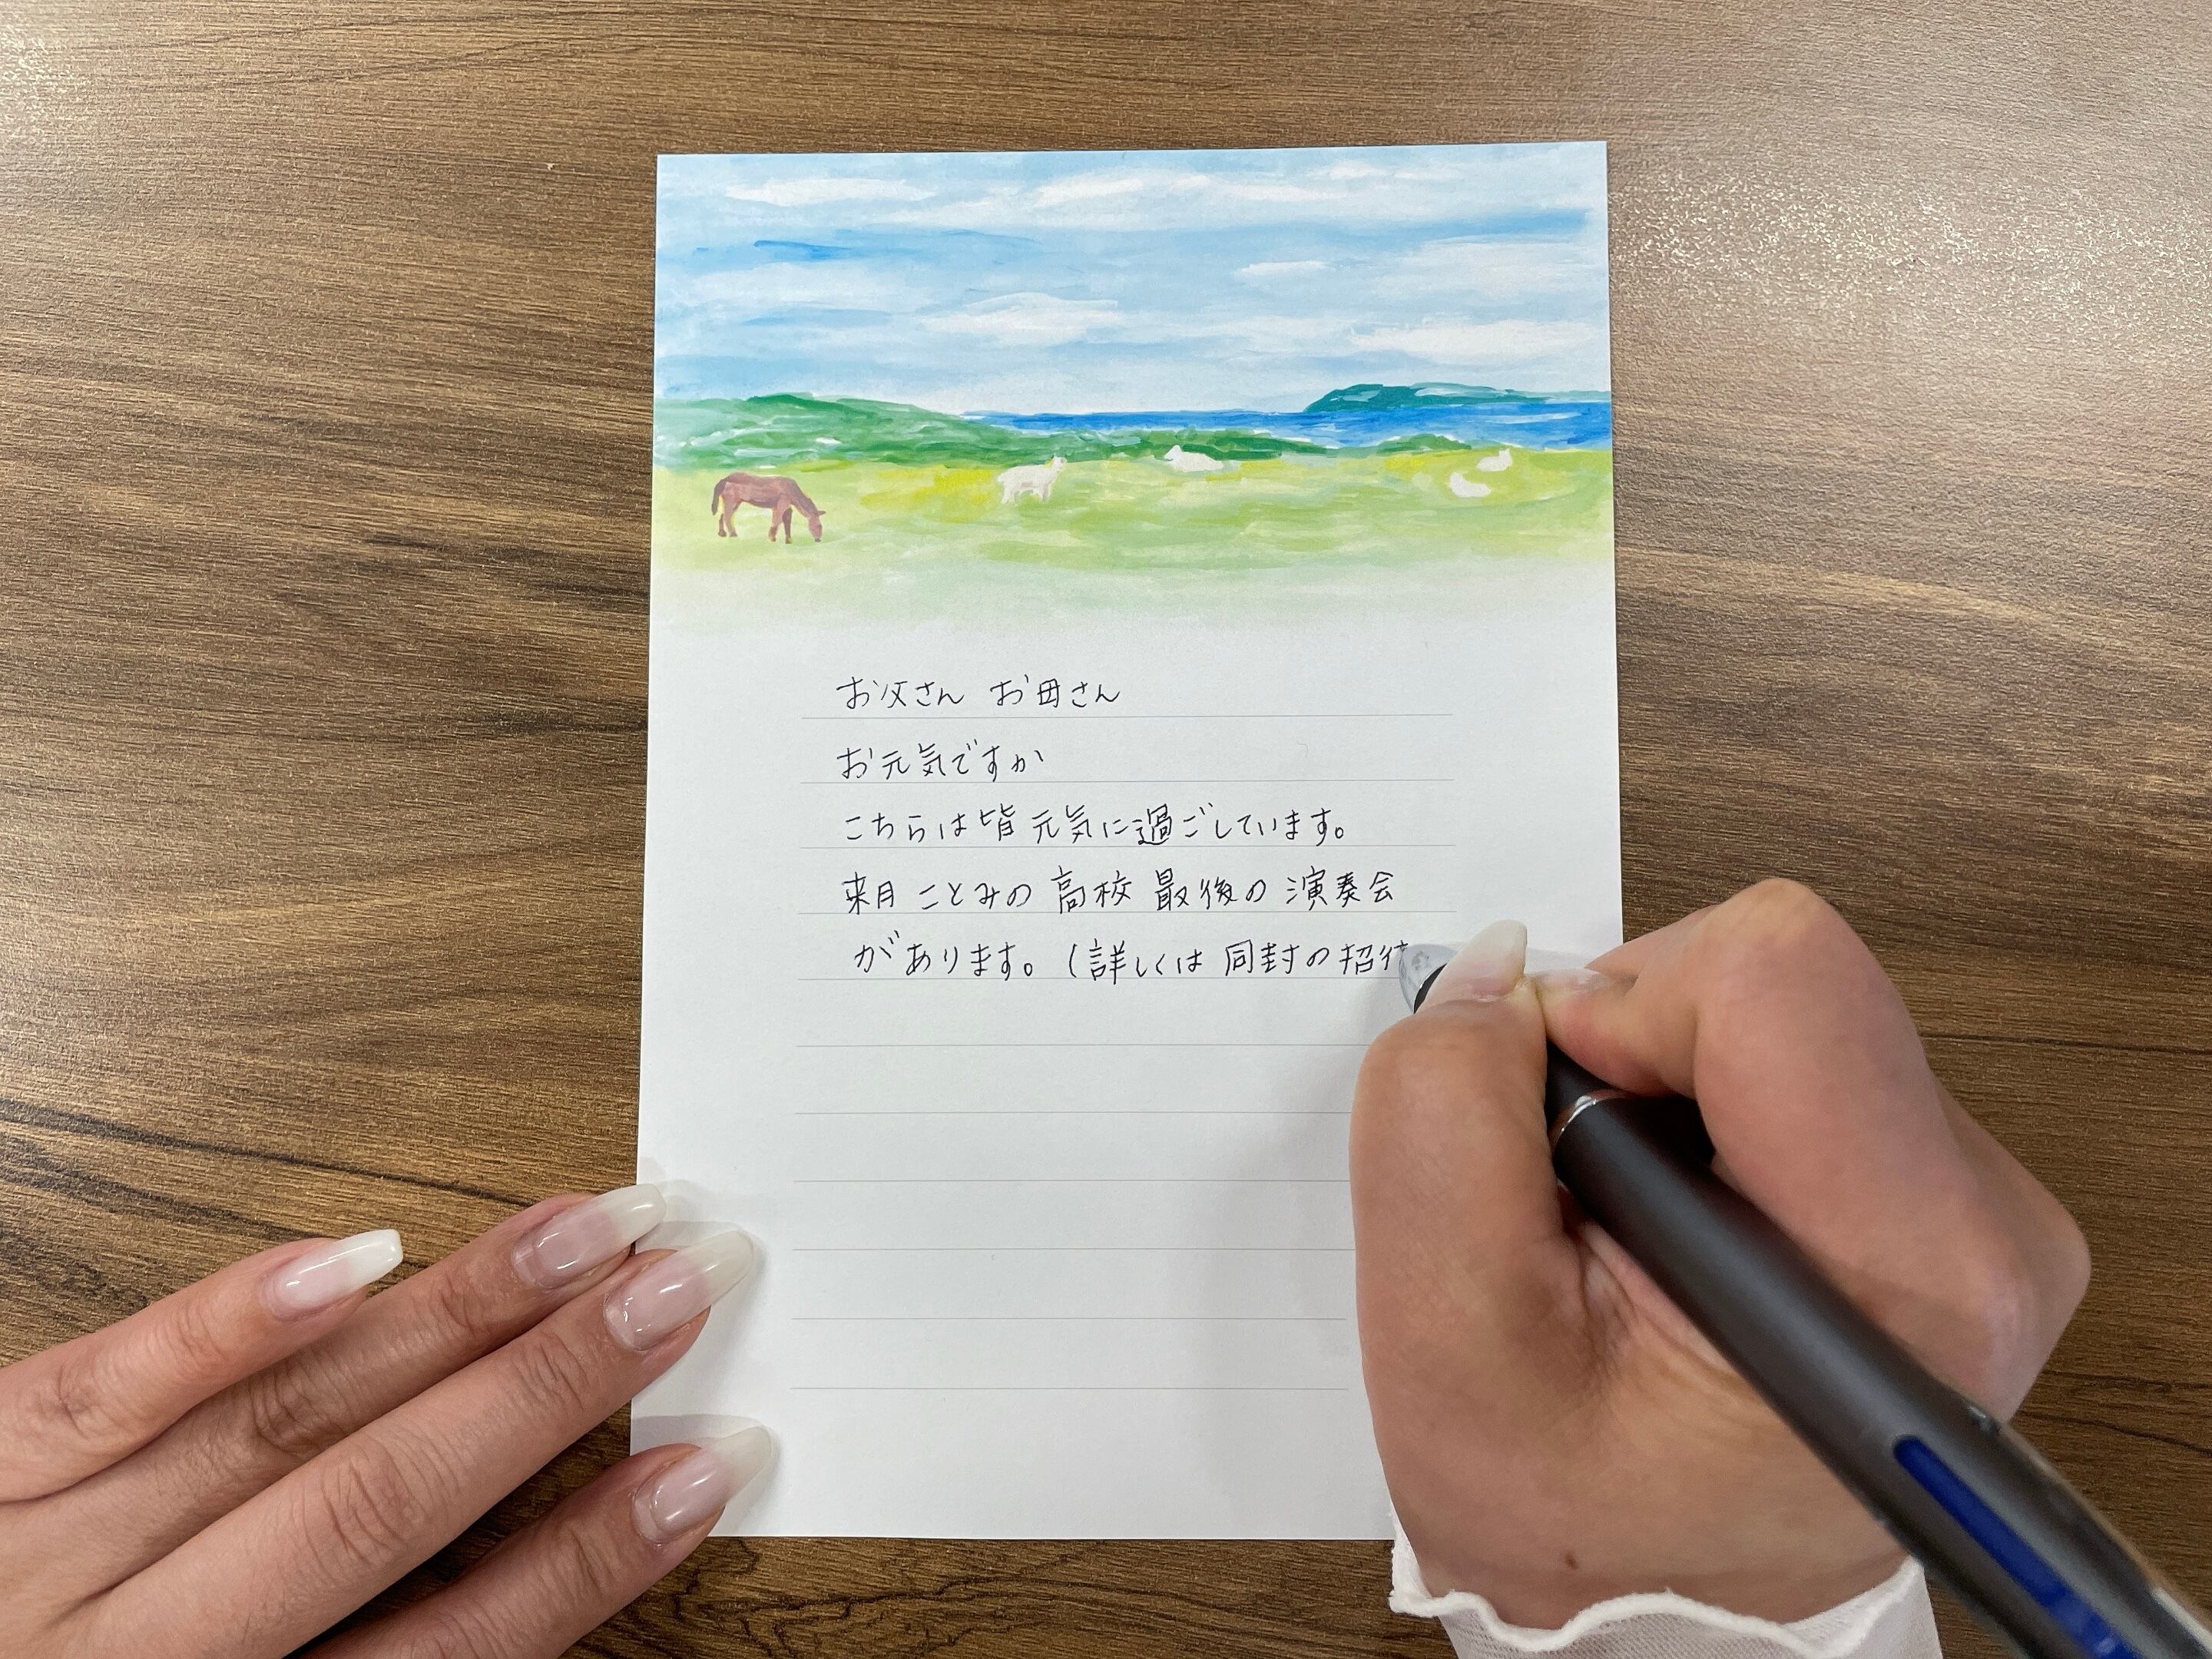 お父さん お母さん
お元気ですか
こちらは皆 元気に過ごしています。
来月 ことみの 高校 最後の 演奏会
があります。(詳しくは 同封の招待